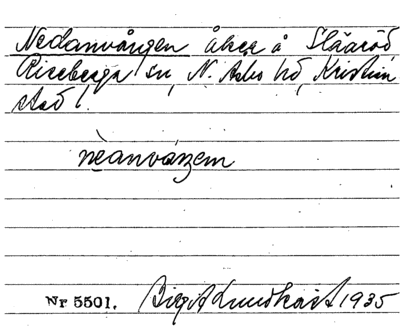 Nedanvången åker å Släaröd,
Riseberga sn, N. Åsbo hd, Kristian
stad l.
neanvåŋen
Nr 5501. Birgit Lundkvist 1935